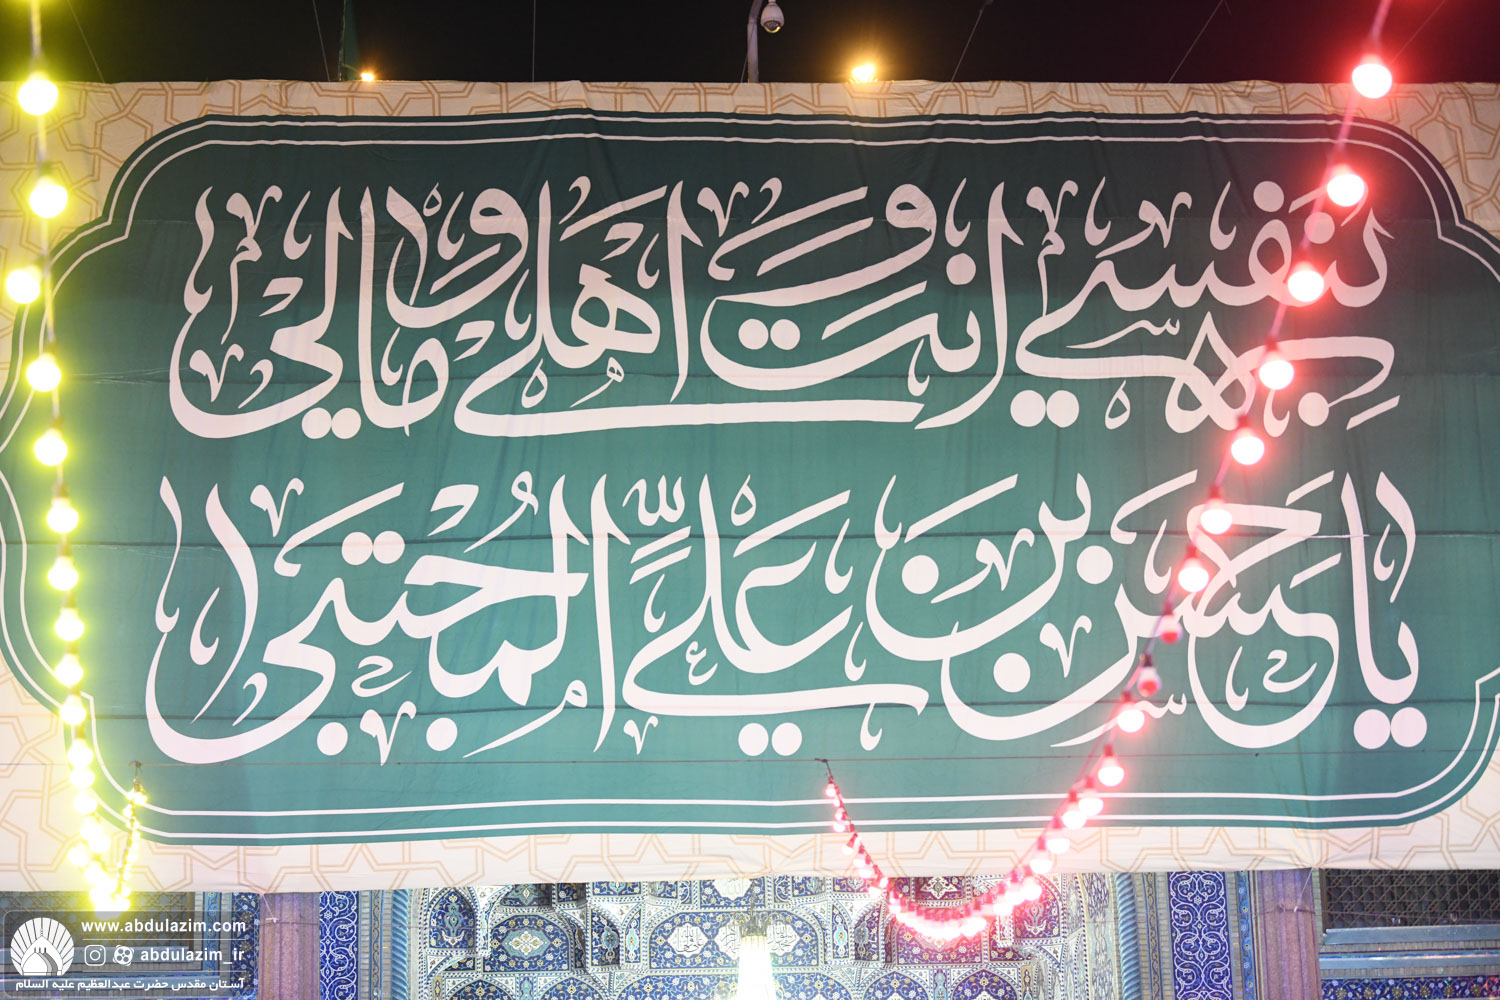 بنفسي انت و اهلي و مالي
يا حسن بن علي المجتبى
www.abdulazim.com
abdulazim_ir
آستان مقدس حضرت عبدالعظیم علیه السلام